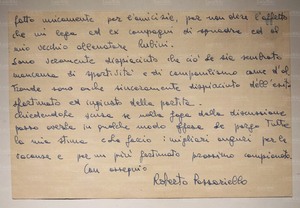 fatto unicamente per l'amicizia, per non dire l'affetto
che mi lega ad ex compagni di squadra ed al
mio vecchio allenatore Rubini.
Sono veramente dispiaciuto che ciò le sia sembrato
mancanza di sportività e di campanilismo come d'al
tronde sono anche sinceramente dispiaciuto dell'esito
sfortunato ed ingiusto della partita.
Chiedendole scusa se nella foga della discussione
posso averla in qualche modo offesa le porgo tutta
la mia stima. Le faccio i migliori auguri per le
vacanze e per un più fortunato prossimo campionato.
Con ossequio
Roberto